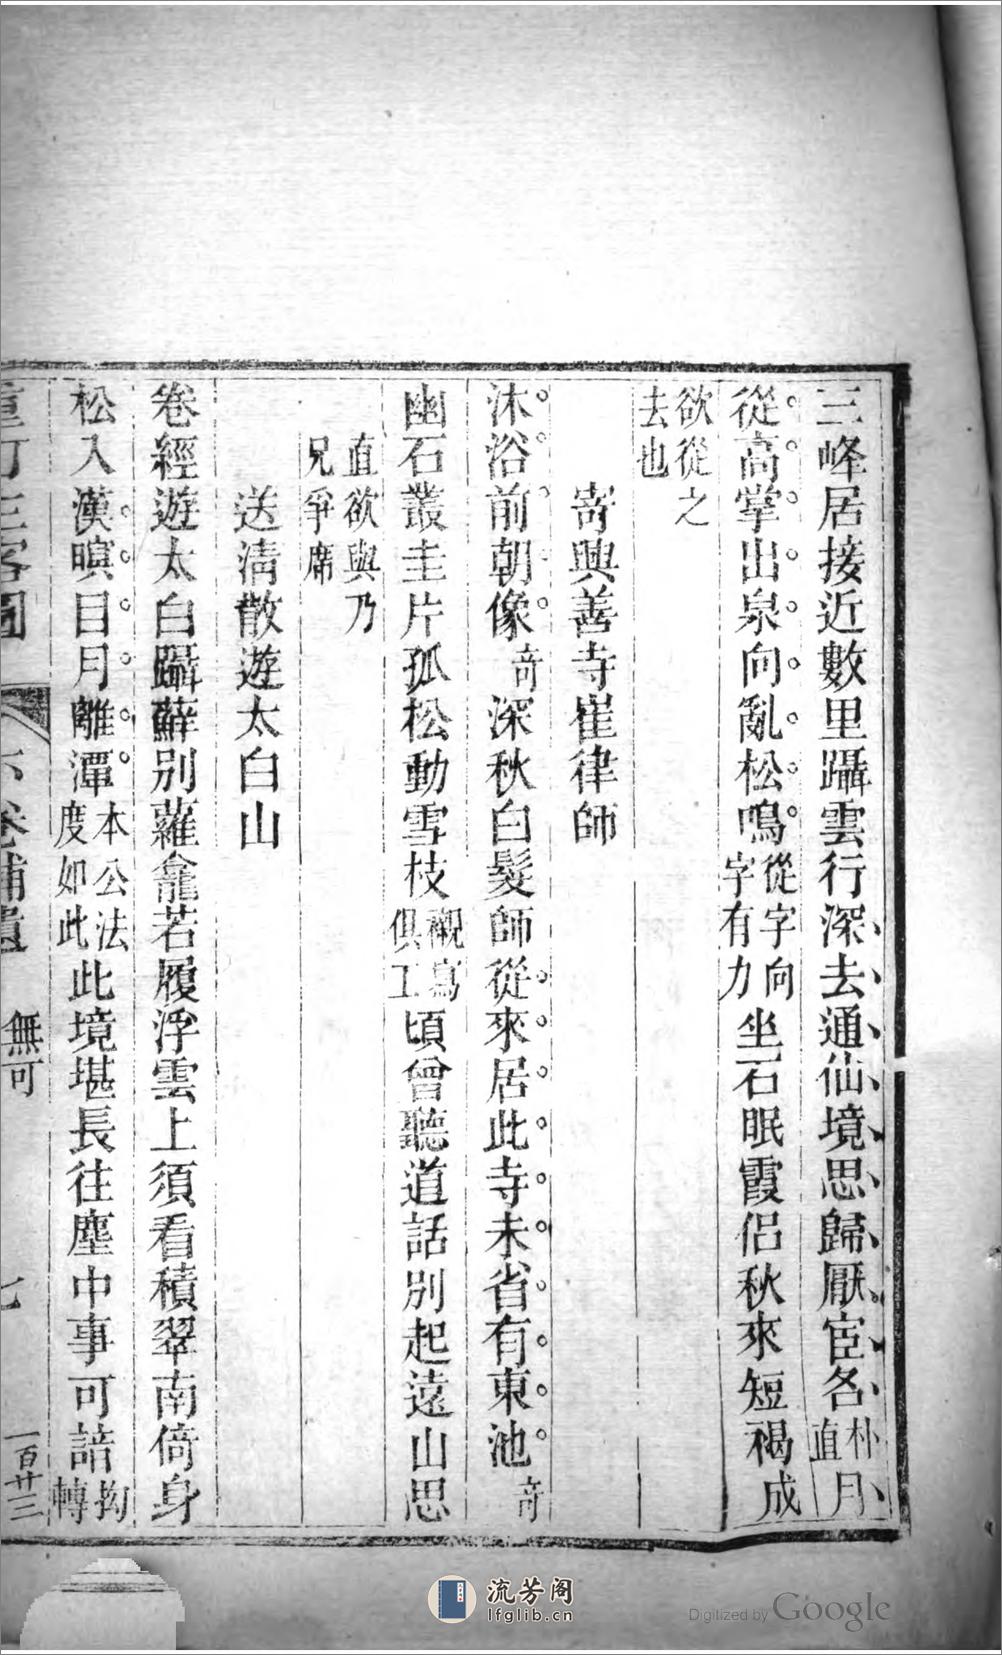 三峰居接近數里躡雲行深去通仙境思歸厭宦名朴直月
從高掌出泉向亂松鳴從字向字有力坐石眠霞侶秋來短褐成
欲從之去也
寄興善寺崔律師
沐浴前朝像奇深秋白髮師從來居此寺未省有東池奇
幽石叢圭片孤松動雪枝襯寫俱工頃曾聽道話別起遠山思
直欲與乃兄爭席
送清散遊太白山
卷經遊太白躡蘚別蘿龕若履浮雲上須看積翠南倚身
松入漢暝目月離潭本公法度如此此境堪長往塵中事可諳拗轉
重訂主客圖
下卷補遺
無可
七
一百廿三
流芳阁
lfglib.cn
Digitized by Google